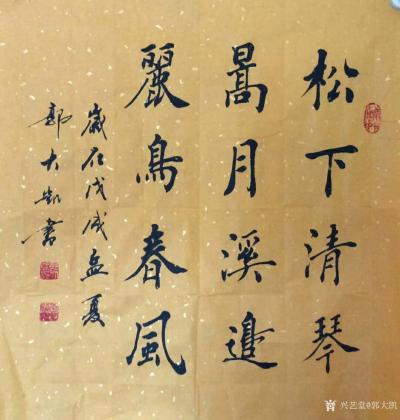 松下清琴
暠月溪邉
麗鳥春風
歳在戊戌孟夏
郭大凯書
兴艺堂@郭大凯